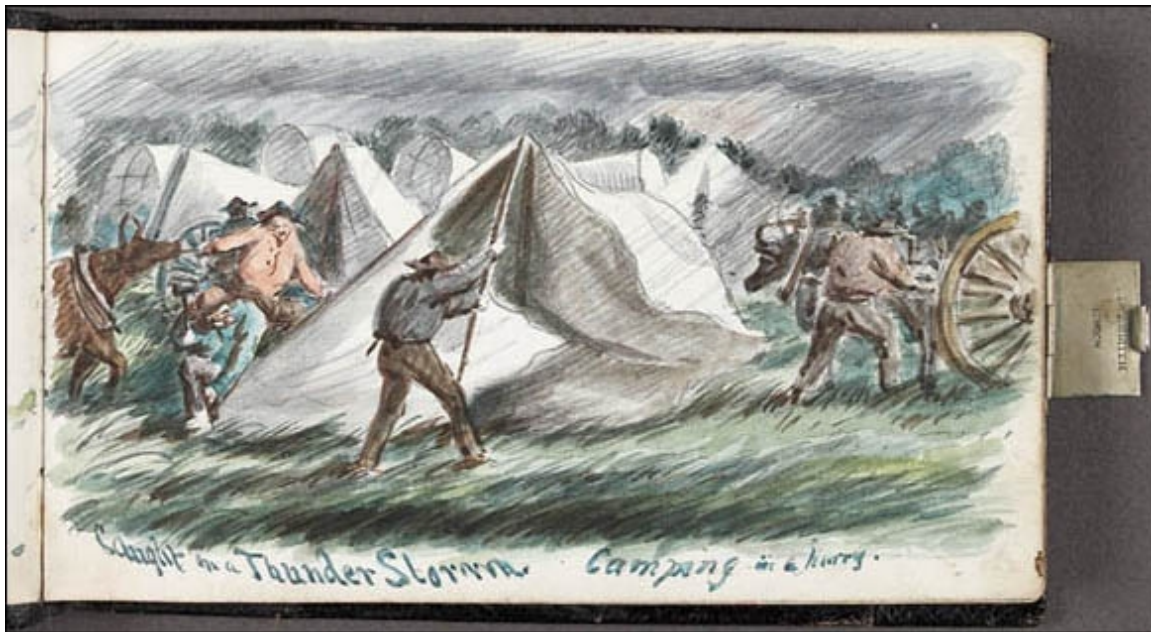 Caught in a Thunder Storm. Camping in a hurry.